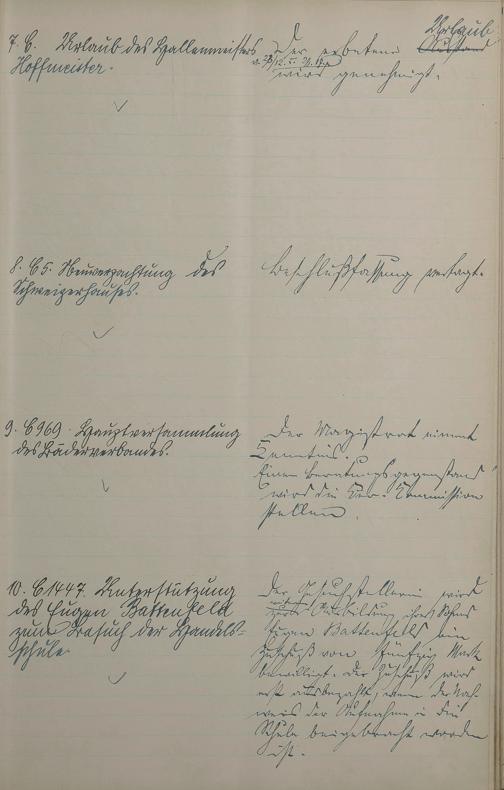 7. C. Urlaub des Hallenmeisters
Hoffmeister.
Der erbetene Urlaub
wird genehmigt.
8. C 5. Neuverpachtung des
Schweizerhauses.
Beschlußfassung vertagt.
9. C 969. Hauptversammlung
des Bäderverbandes.
Der Magistrat nimmt
Kenntnis.
Einen Beratungsgegenstand
wird die Commission
stellen.
10. C 1447. Unterstützung
des Eugen Battenfeld
zum Besuch der Handels=
schule
Der Gesuchstellerin wird
Ausbildung ihres Sohns
Eugen Battenfeld ein
Zuschuß von fünfzig Mark
bewilligt. Der Zuschuß wird
erst ausbezahlt, wenn der Nach
weis der Aufnahme in die
Schule beigebracht worden
ist.